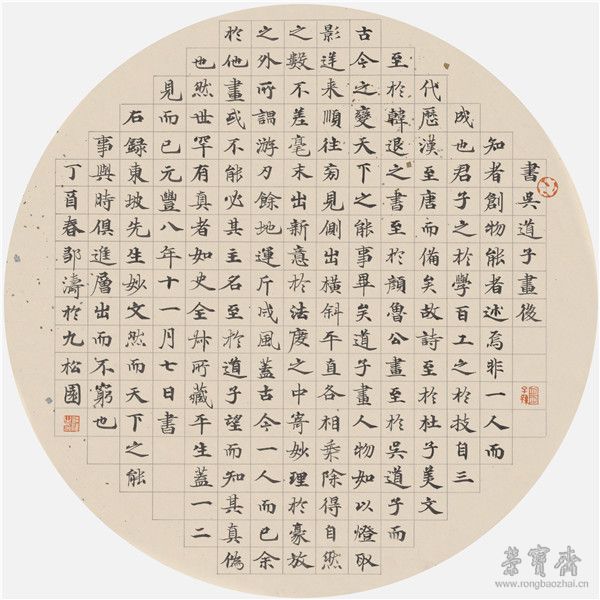 書吳道子畫後
知者創物能者述焉非一人而
成也君子之於學百工之於技自三
代歷漢至唐而備矣故詩至於杜子美文
至於韓退之書至於顏魯公畫至於吳道子而
古今之變天下之能事畢矣道子畫人物如以燈取
影逆來順往旁見側出橫斜平直各相乘除得自然
之數不差毫末出新意於法度之中寄妙理於豪放
之外所謂游刃餘地運斤成風蓋古今一人而已余
於他畫或不能必其主名至於道子望而知其真偽
也然世罕有真者如史全叔所藏平生蓋一二
見而已元豐八年十一月七日書
右錄東坡先生妙文然而天下之能
事與時俱進層出而不窮也
丁酉春鄒濤於九松園
榮寶齋
www.rongbaozhai.cn